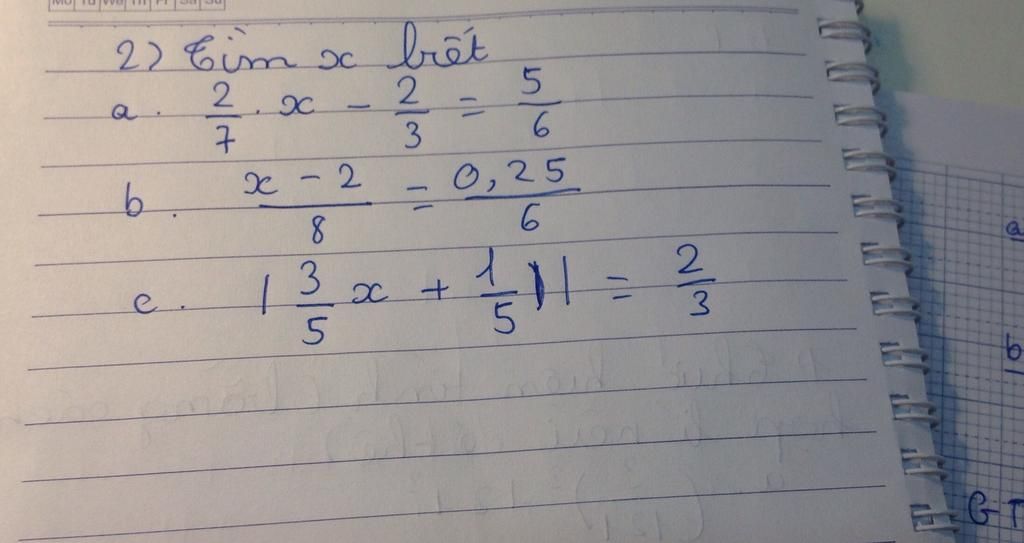 Mo Tu We Th Fr Sa Su
2) Tìm x biết
a. 2/7 . x - 2/3 = 5/6
b. x - 2/8 = 0,25/6
c. | 3/5 x + 1/5 | = 2/3
a
b
GT